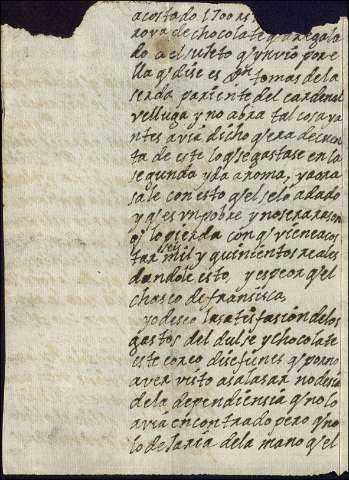 acostado 1700 rs
rova de chocolate q a regala
do a el sujeto q vivio por e
lla q dise es Dn tomas de la
serda pariente del cardenal
velluga y no abra tal cosa va
ntes avia dicho q era de cuen
ta de este lo q se gastase en la
segunda yda a roma, y aora
sale con esto q el se lo a dado
y q es un pobre y no sera rason
q lo pierda con q viene a cos
tar seis mil y quinientos reales
dandole esto, y es peor q el
chasco de fransisca,
yo deseo la satisfasion de los
gastos del dulse y chocolate
este coreo dise fines q por no
aver visto a salasar no desia
de la dependiensia q no lo
avia encontrado pero q no
lo dexaria de la mano q el